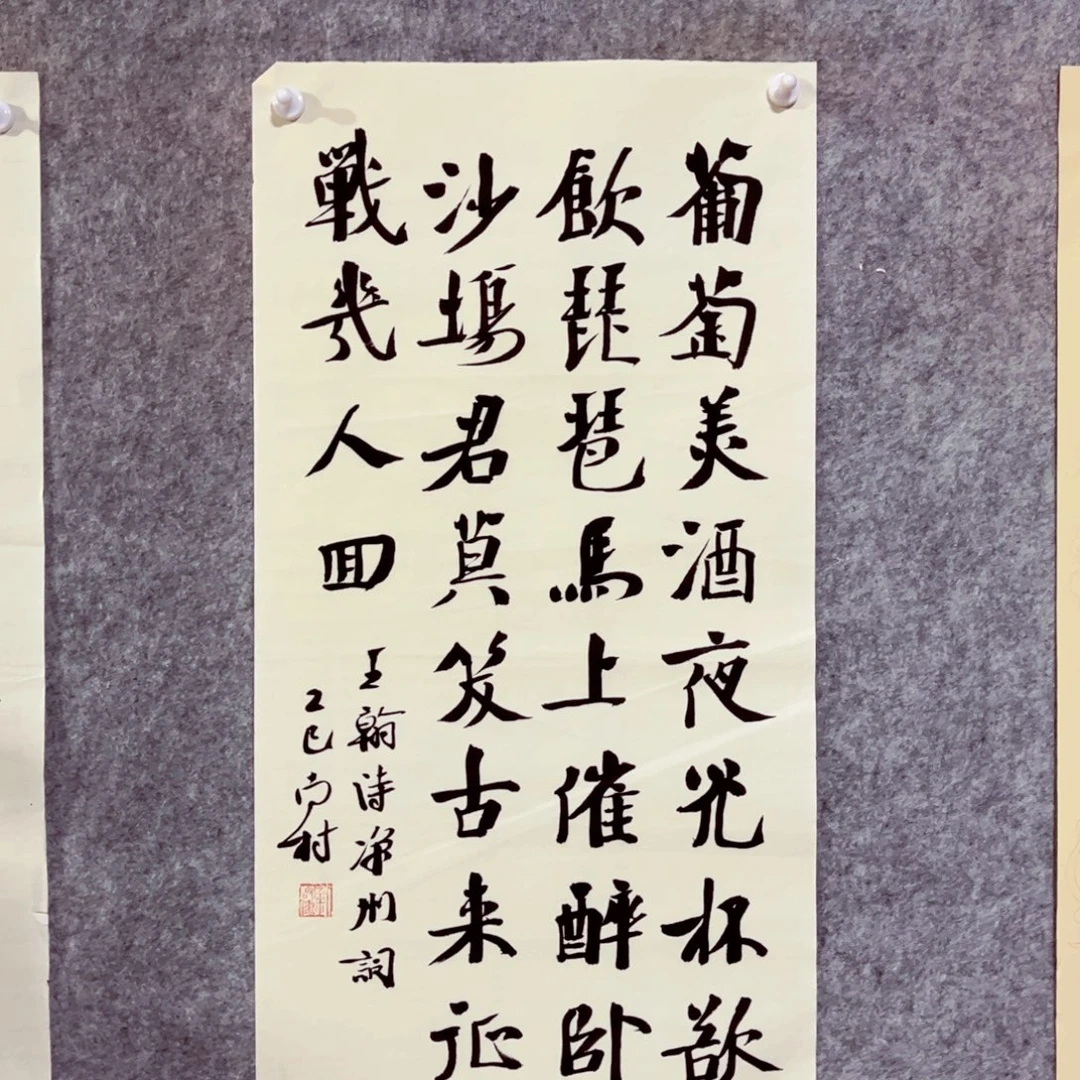 葡萄美酒夜光杯欲
飲琵琶馬上催醉卧
沙場君莫笑古来征
戰幾人回
王翰詩涼州詞
乙巳尚村